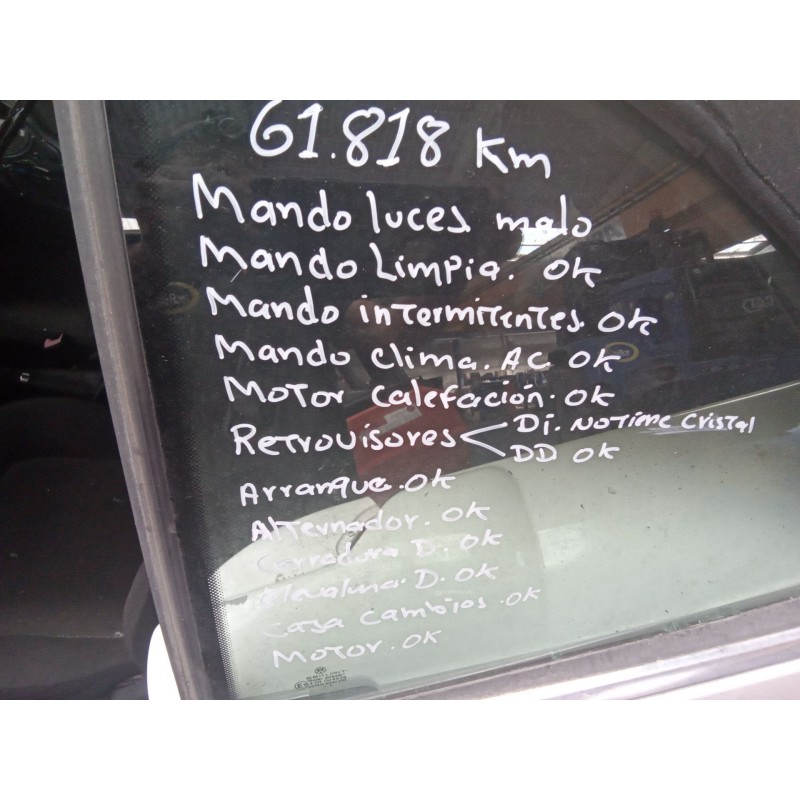 61.818 Km
Mando luces malo
Mando Limpia. OK
Mando intermitentes. OK
Mando clima. AC OK
Motor Calefación. OK
Retrovisores < DI. NO Tiene Cristal
DD OK
Arranque. OK
Alternador. OK
Cerradura D. OK
Elevaluna D. OK
Casa Cambios. OK
Motor. OK